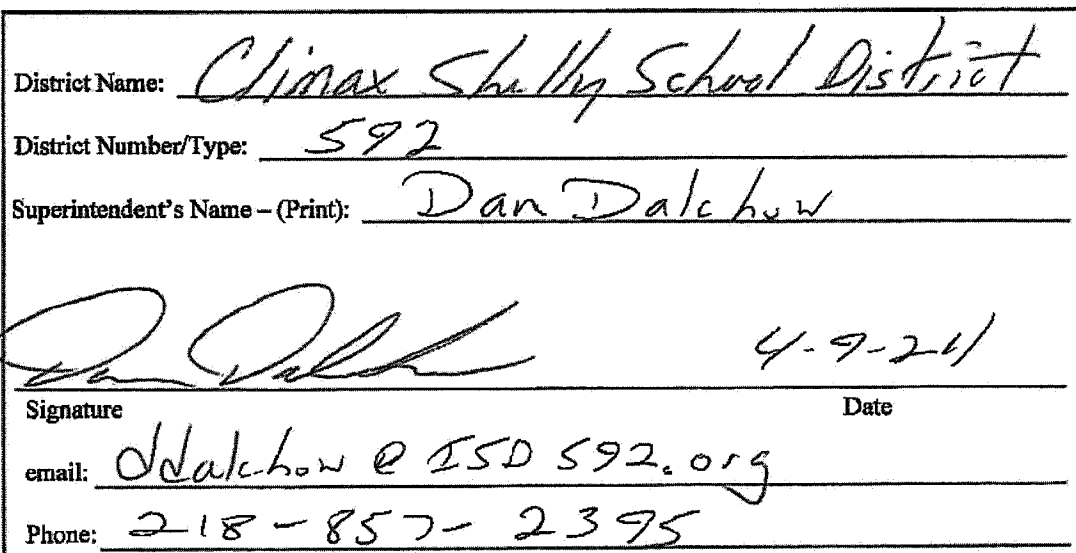 District Name: Climax Shelly School District
District Number/Type: 592
Superintendent's Name – (Print): Dan Dalchow
Dan Dalchow 4-9-24
Signature Date
email: ddalchow @ ISD 592.org
Phone: 218-857-2395